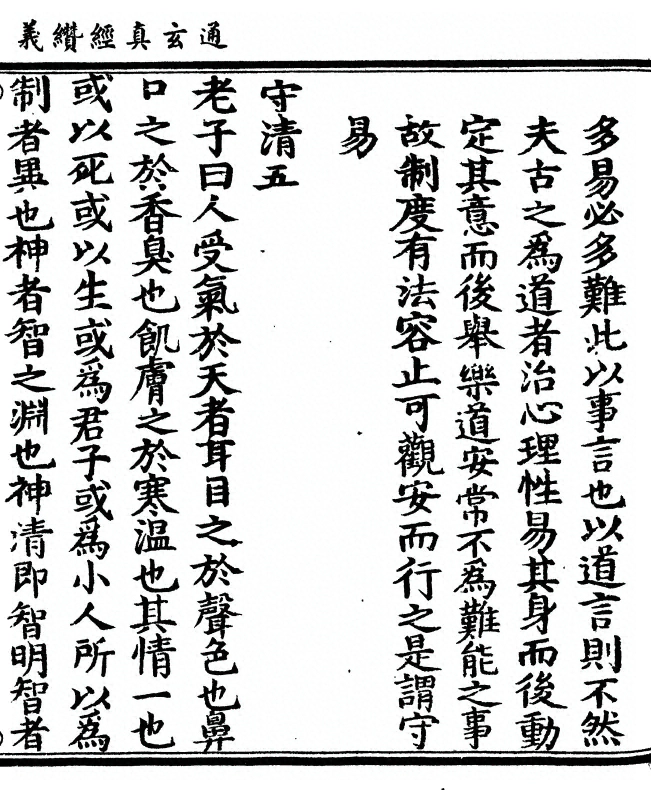 通玄真經纘義
多易必多難此以事言也以道言則不然
夫古之為道者治心理性易其身而後動
定其意而後舉樂道安常不為難能之事
故制度有法容止可觀安而行之是謂守
易
守清五
老子曰人受氣於天者耳目之於聲色也鼻
口之於香臭也飢膚之於寒溫也其情一也
或以死或以生或為君子或為小人所以為
制者異也神者智之淵也神清即智明智者